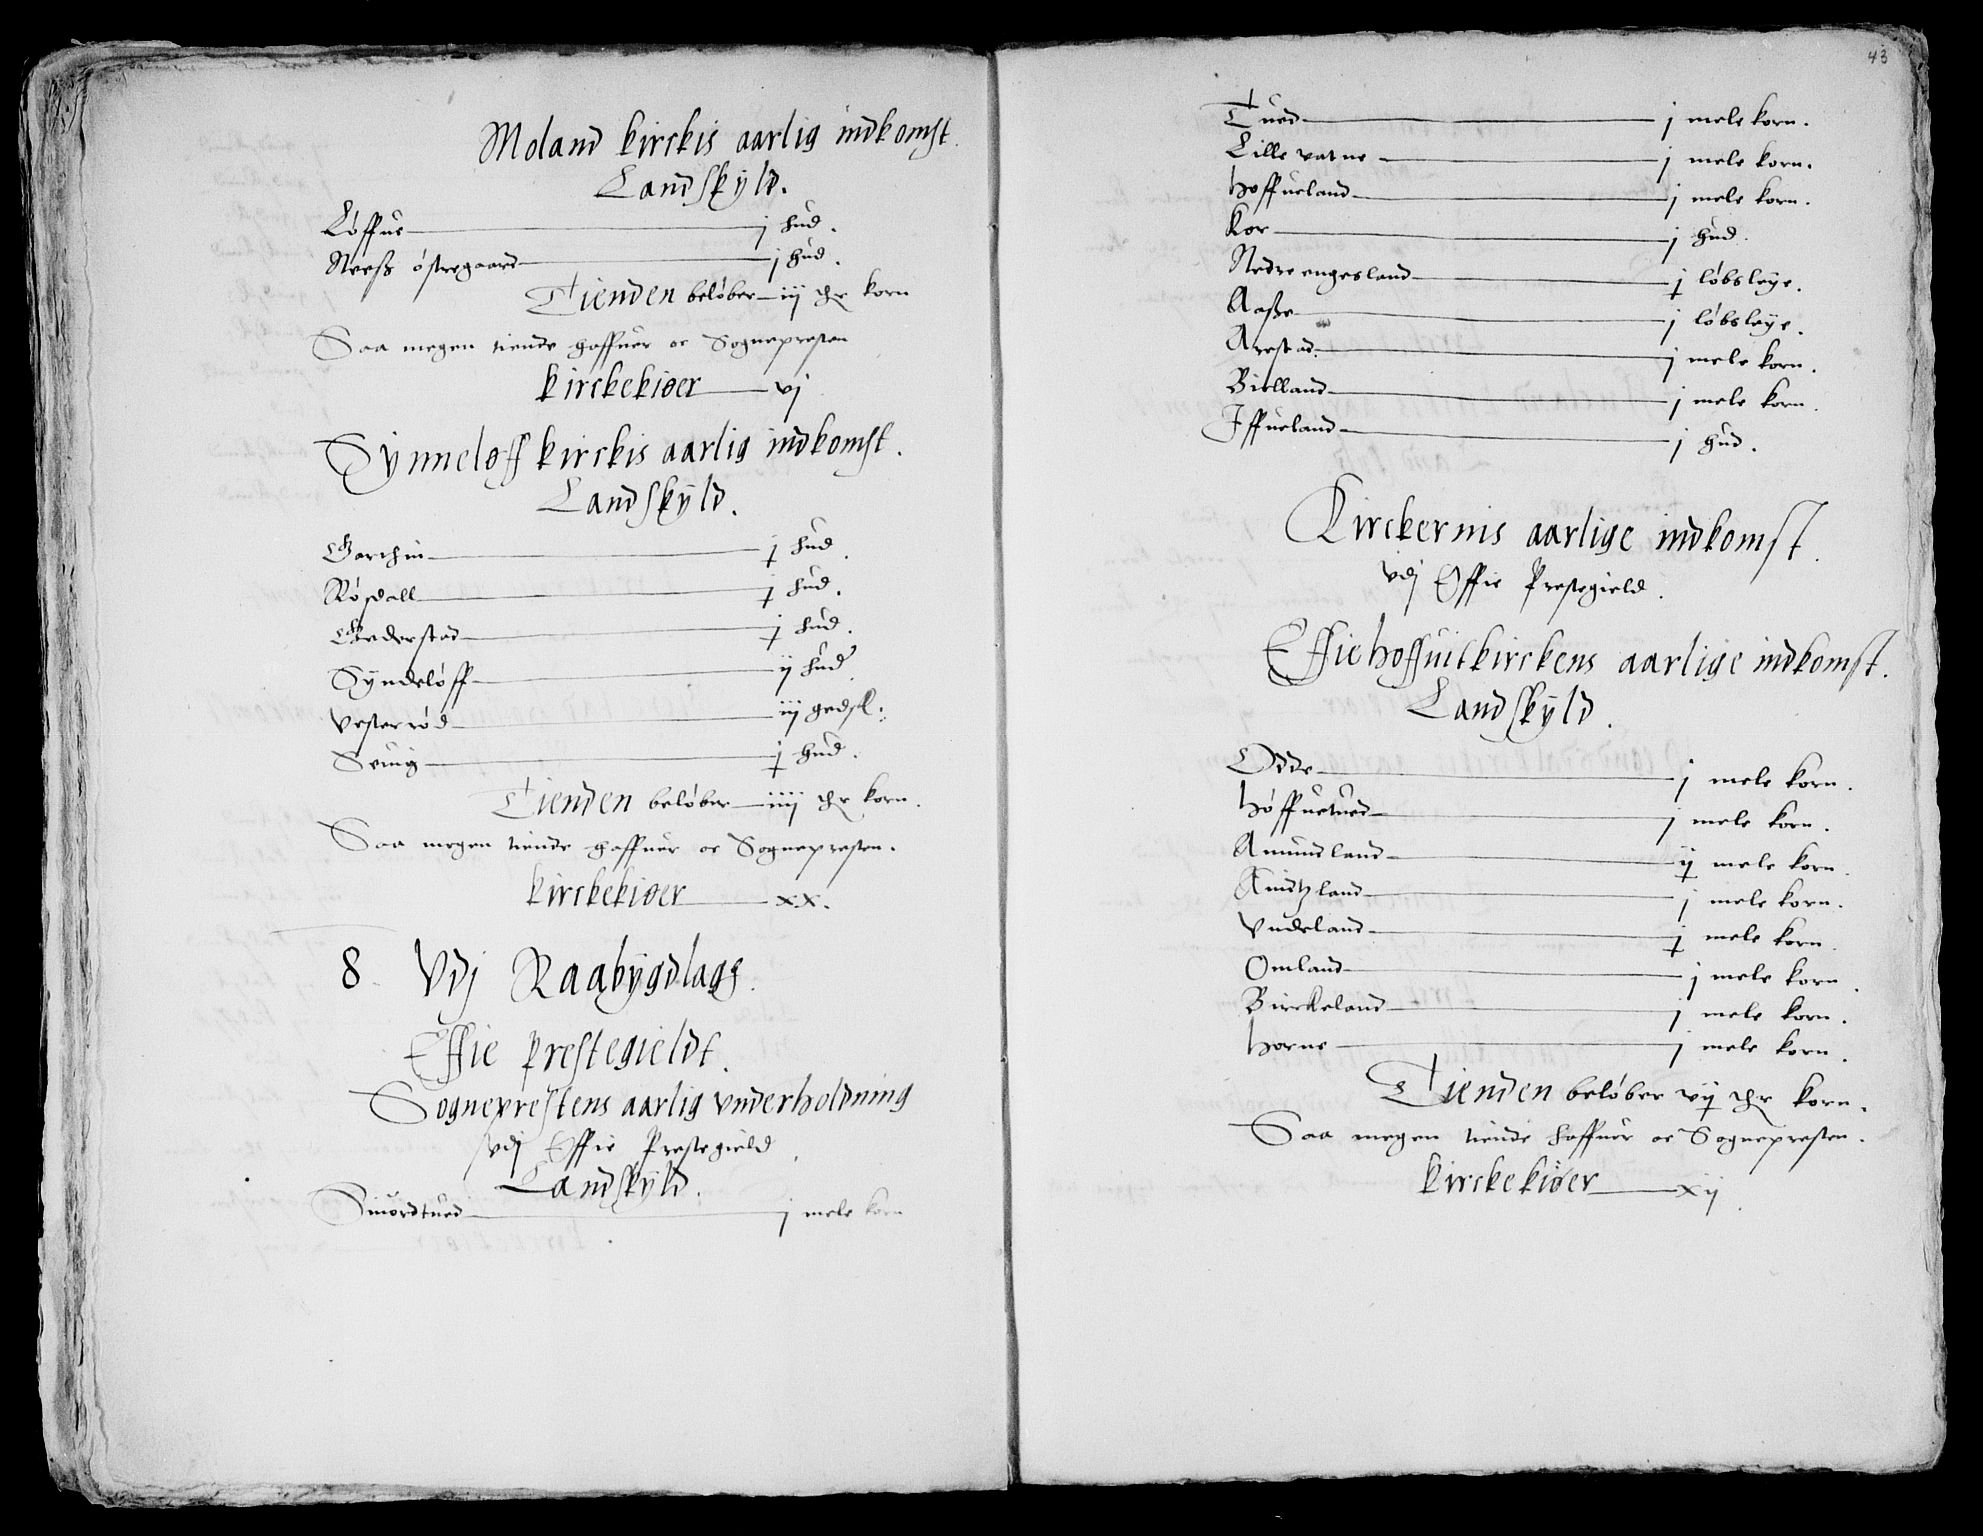 Moland kirckis aarlig indkomst.
Landskÿld.
Løffue j hud.
Neeß østregaard j hud.
Tienden beløber iij pr korn
Saa megen tiende haffuer oc Sognepresten
kirckekiøer vj
Sÿnneløff kirckis aarlig indkomst.
Landskÿld.
Garthiu j hud.
Røsdall j hud.
Gederstad j hud.
Sÿndeløff ij hud.
Vesterrød iij gedsk.
Seuig j hud.
Tienden beløber iiij pr korn.
Saa megen tiende haffuer oc Sognepresten.
kirckekiøer xx.
8 Vdj Raabÿgdlagg.
Effie prestegieldt.
Sogneprestens aarlig vnderholdning
vdj Effie Prestegield.
Landskÿld.
Suordtued j mele korn
43
Tued j mele korn.
Lille vatne j mele korn.
Hoffueland j mele korn.
Kor j hud.
Nedre engesland j løbsleye.
Aaße j løbsleye.
Arestad j mele korn.
Bielland j mele korn.
Iffueland j hud.
Kirckernis aarlige indkomst.
vdj Effie Prestegield.
Effie hoffuitkirckens aarlige indkomst.
Landskÿld.
Odde j mele korn.
Høffuetued j mele korn.
Amundland ij mele korn.
Knudtzland j mele korn.
Vndeland j mele korn.
Omland j mele korn.
Birckeland j mele korn.
Horne j mele korn.
Tienden beløber vij pr korn.
Saa megen tiende haffuer oc Sognepresten.
kirckekiøer xij